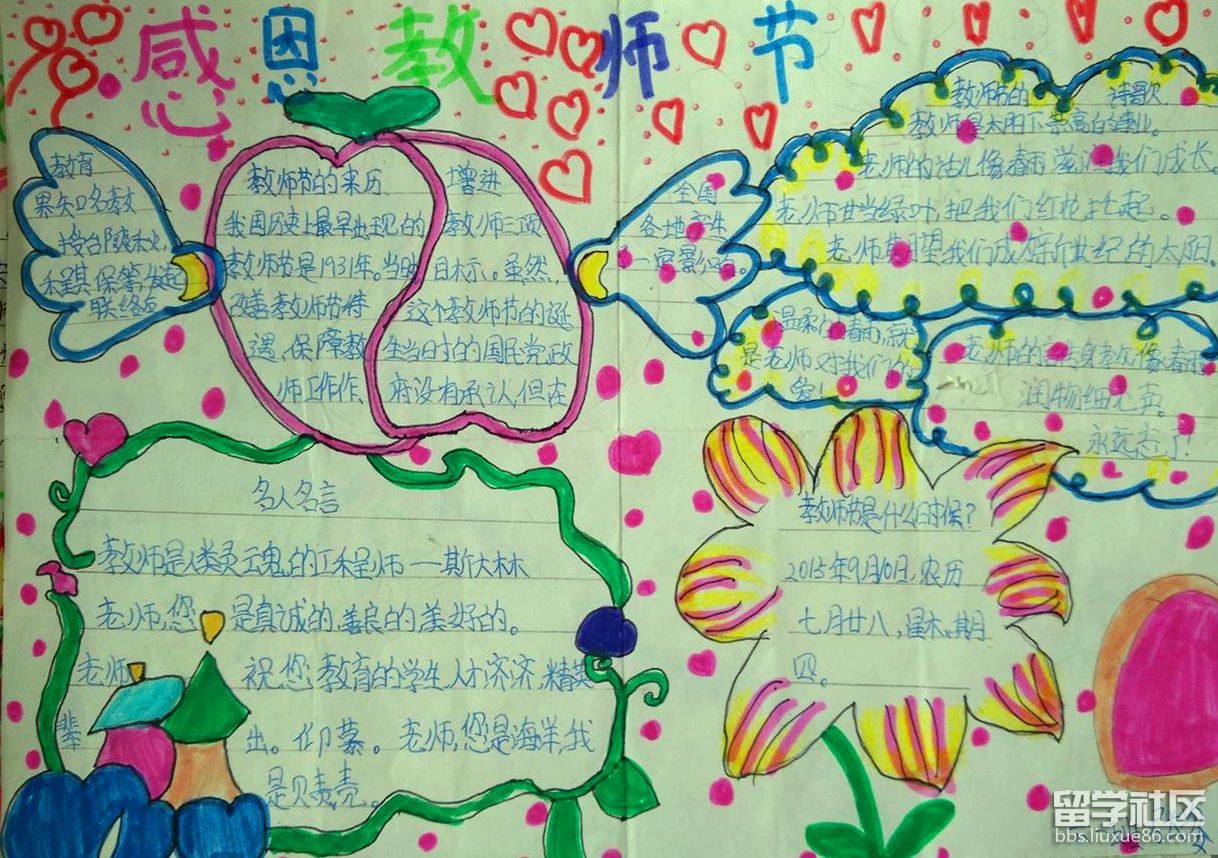 感恩教师节
教育
界知名教
授台爽
程其保等发起
联络
教师节的来历
我国历史上最早出现的
教师节是1931年。当时
改善教师节待
遇,保障教
师工作作
增进
教师三项
目标示。虽然,
这个教师节的诞
生当时的国民党政
府没有承认,但在
全国
各地产生
教师节的 诗歌
教师是太阳下崇高的事业。
老师的话儿像春雨滋润我们成长。
老师甘当绿叶,把我们红花托起。
老师期望我们成 新世纪的太阳。
温柔 春雨,就
是老师对我们的
爱!
老师的言传身教就像春雨
润物细无声。
永远忘了!
名人名言
教师是人类灵魂的工程师——斯大林
老师,您 是真诚的,善良的,美好的。
老师 祝您,教育的学生,人才济济,精英
辈 出。仰慕。老师,您是海洋,我
是贝壳。
教师节是什么时候?
2015年9月10日,农历
七月廿八,星期
四。
留学社区
bbs.liuxue86.com